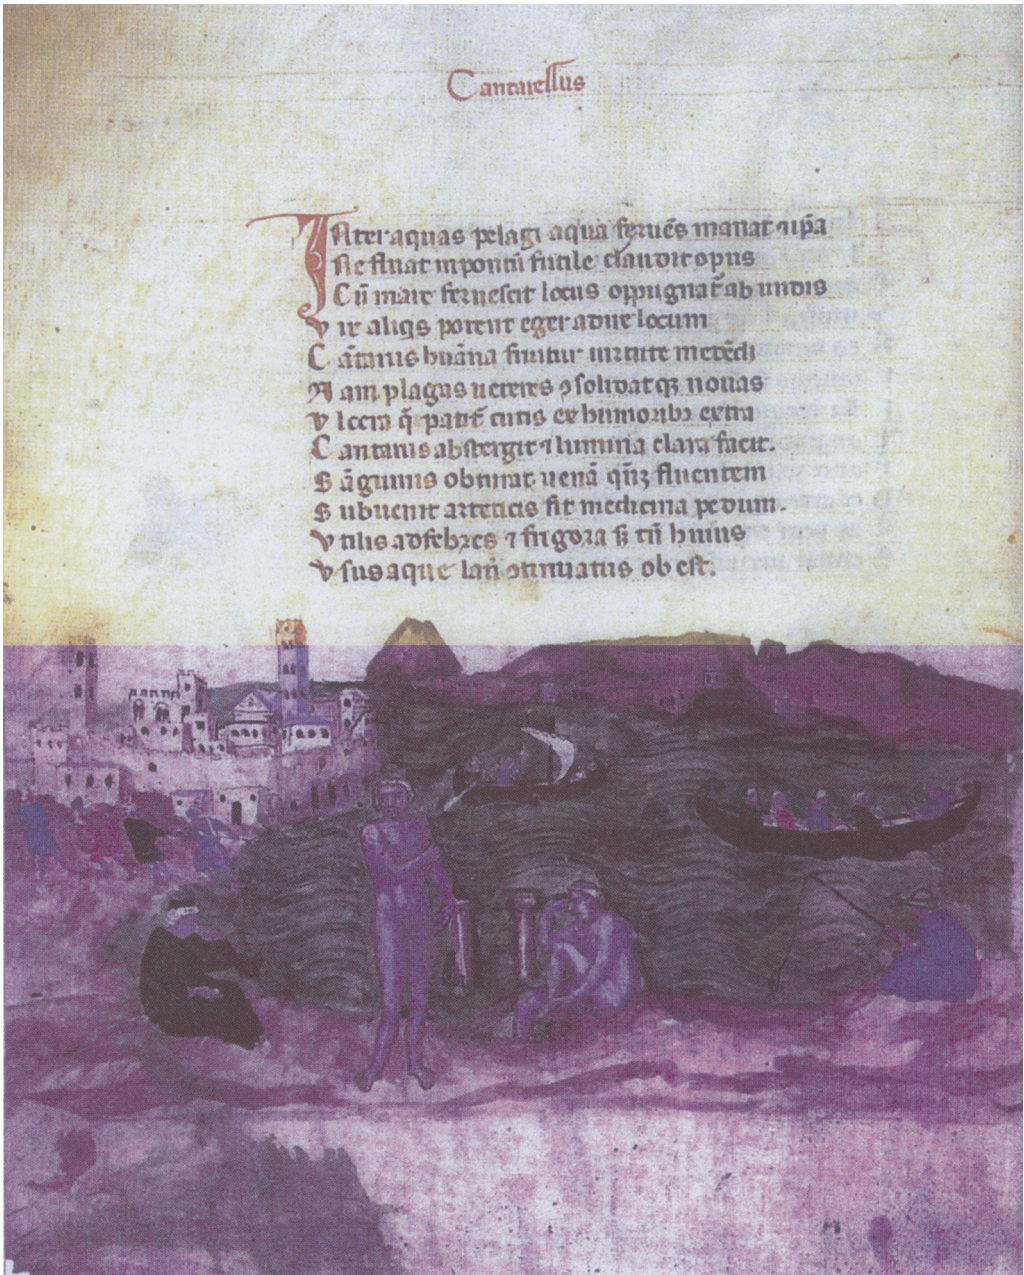 Cantarellus
INter aquas pelagi aqua feruēs manat ⁊ ip̄a
Ne fluat in pontū futile claudit opus
Cū mare feruescit locus oppugnat̄ ab undis
Vix aliq̄s poterit eger adire locum
Cātarus huāna fruitur uirtute medēdi
Nam plagas ueteres ꝯsolidat qꝫ nouas
Vlcera q̄ patit̄ cutis ex humoribꝫ extra
Cantarus abstergit ⁊ lumina clara facit.
Sāguinis obturat uenā qn̄qꝫ fluentem
Subuenit arteticis fit medicina pedum.
Vtilis ad febres ⁊ frigora s̄ tn̄ huius
Vsus aque ꝯtinuatus obest.